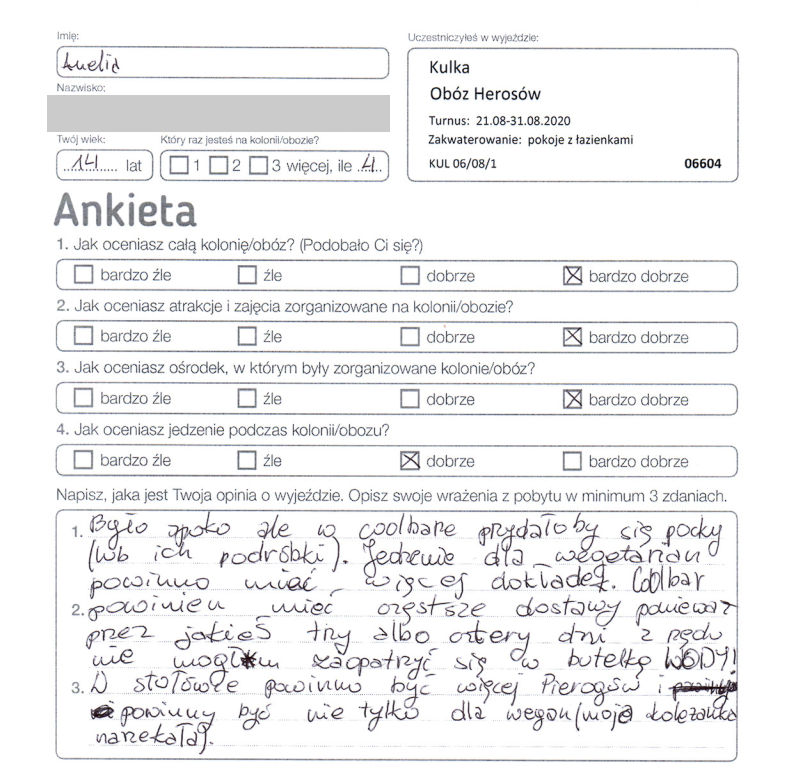 Imię:
Amelia
Nazwisko:
Twój wiek:
14 lat
Który raz jesteś na kolonii/obozie?
1 2 3 więcej, ile 4
Uczestniczyłeś w wyjeździe:
Kulka
Obóz Herosów
Turnus: 21.08-31.08.2020
Zakwaterowanie: pokoje z łazienkami
KUL 06/08/1 06604
Ankieta
1. Jak oceniasz całą kolonię/obóz? (Podobało Ci się?)
bardzo źle źle dobrze bardzo dobrze
2. Jak oceniasz atrakcje i zajęcia zorganizowane na kolonii/obozie?
bardzo źle źle dobrze bardzo dobrze
3. Jak oceniasz ośrodek, w którym były zorganizowane kolonie/obóz?
bardzo źle źle dobrze bardzo dobrze
4. Jak oceniasz jedzenie podczas kolonii/obozu?
bardzo źle źle dobrze bardzo dobrze
Napisz, jaka jest Twoja opinia o wyjeździe. Opisz swoje wrażenia z pobytu w minimum 3 zdaniach.
1. Było spoko ale w coolbare przydałoby się pocky
(lub ich podróbki). Jedzenie dla wegetarian
powinno mieć więcej dokładek. Coolbar
2. powinien mieć częstsze dostawy ponieważ
przez jakieś trzy albo cztery dni z rzędu
nie mogłam zaopatrzyć się w butelkę WODY!
3. W stołówce powinno być więcej Pierogów i
powinny być nie tylko dla wegan (moja koleżanka
narzekała).